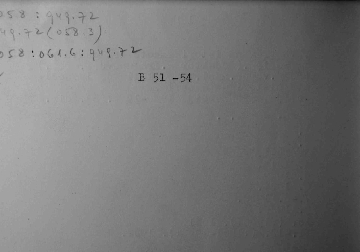 058 : 949.72
949.72(058.3)
058 : 061.6 : 949.72
B 51 -54